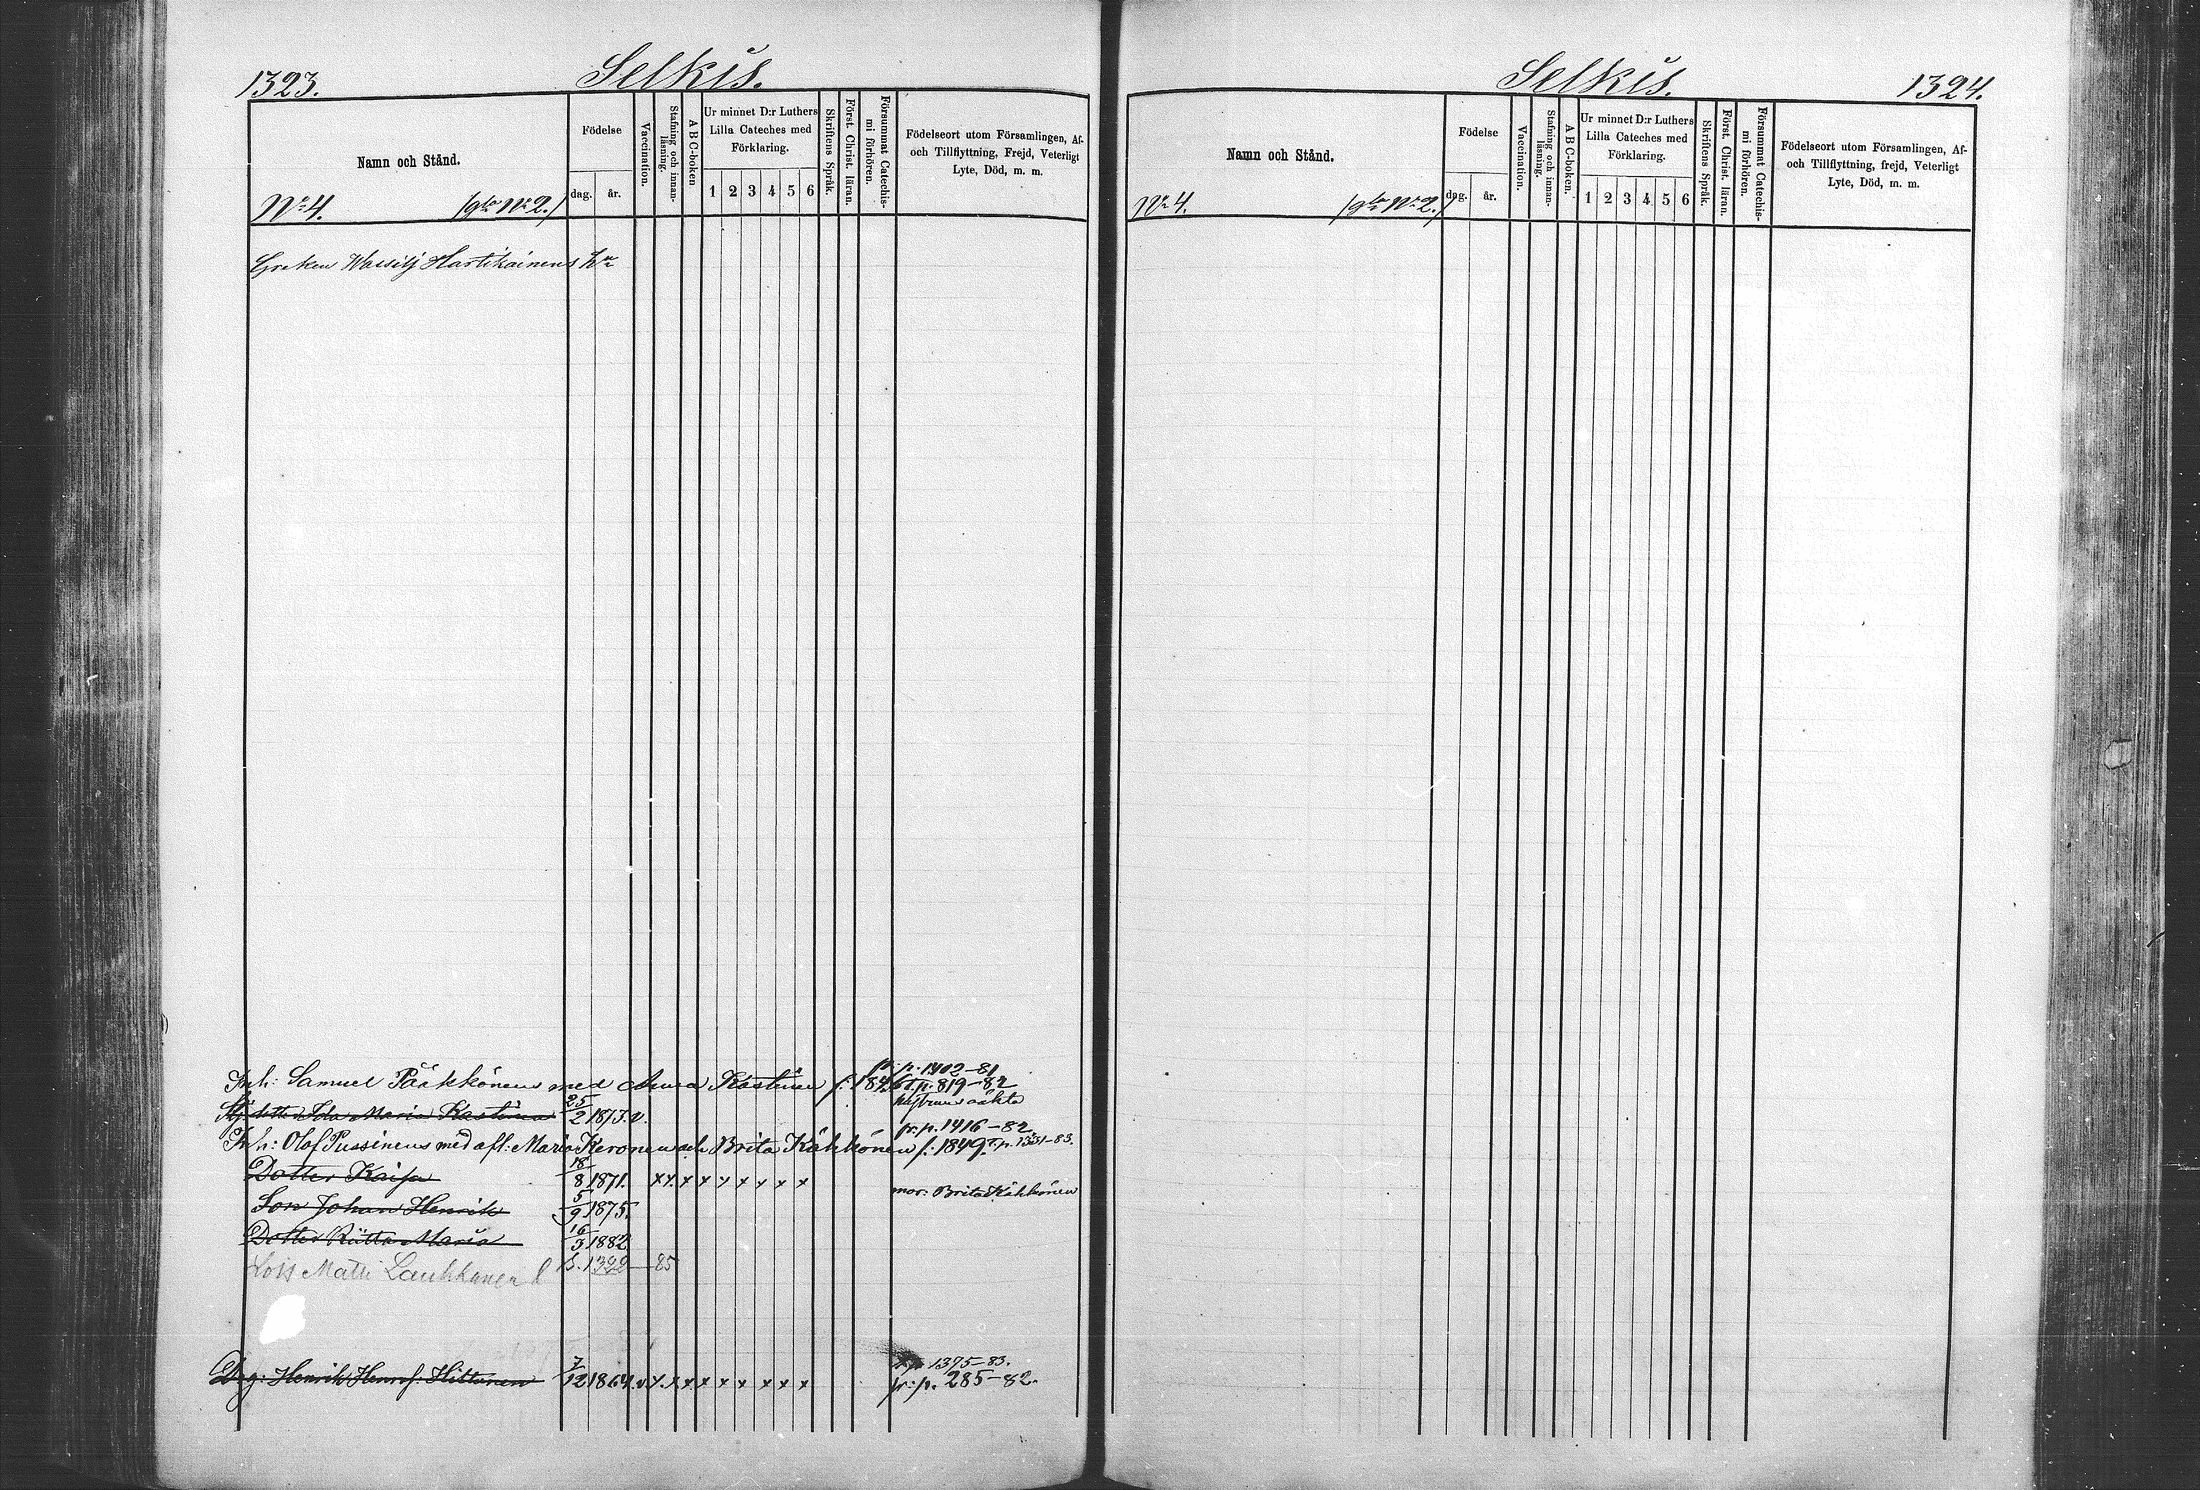 1323.
Selkis.
Namn och Stånd.
Födelse
dag. år.
Vaccination.
Stafning och innanläsning.
A B C-boken
Ur minnet D:r Luthers
Lilla Cateches med
Förklaring.
1 2 3 4 5 6
Skriftens Språk.
Först. Christ. läran.
Försummat Catechismi förhören.
Födelseort utom Församlingen, Af-
och Tillflyttning, Frejd, Veterligt
Lyte, Död, m. m.
No 4. No 2.
Greken Wassilj Hartikainens
p. 1402-81
Inh: Samuel Pääkkönens med Anna f: 184
p. 819-82
25/2 1873. v.
Ida Maria
p. 1416-82.
Inh: Olof Pussinens med afl: Maria Keronen och Brita Kähkönen f: 1849. 1331-83.
Dotter Kaisa 18/8 1871. x x x x x x x x x
mor: Brita Kähkönen
Son Johan Henrik 5/9 1875.
Dotter Riitta Maria 16/3 1882
Matti Laukkanen 1392-85
p. 1375-83.
Drg: Henrik Henrs. Hiltunen 7/12 1864. v x x x x x x x x x
p. 285-82.
Selkis.
1324.
Namn och Stånd.
Födelse
dag. år.
Vaccination.
Stafning och innanläsning.
A B C-boken.
Ur minnet D:r Luthers
Lilla Cateches med
Förklaring.
1 2 3 4 5 6
Skriftens Språk.
Först. Christ. läran.
Försummat Catechismi förhören.
Födelseort utom Församlingen, Af-
och Tillflyttning, frejd, Veterligt
Lyte, Död, m. m.
No 4. No 2.